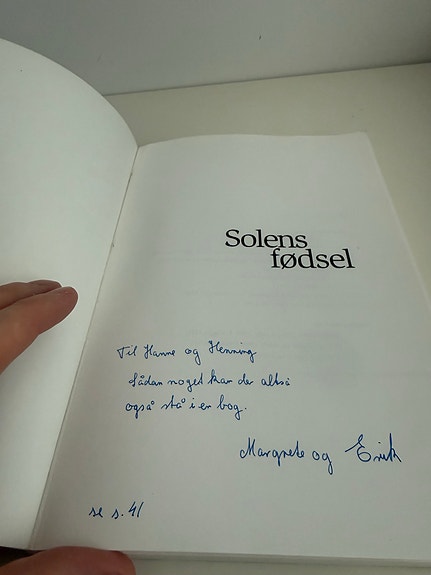 Solens
fødsel
Til Hanne og Henning
Sådan noget kan der altså
også stå i en bog.
Margrete og Erik
se s. 41